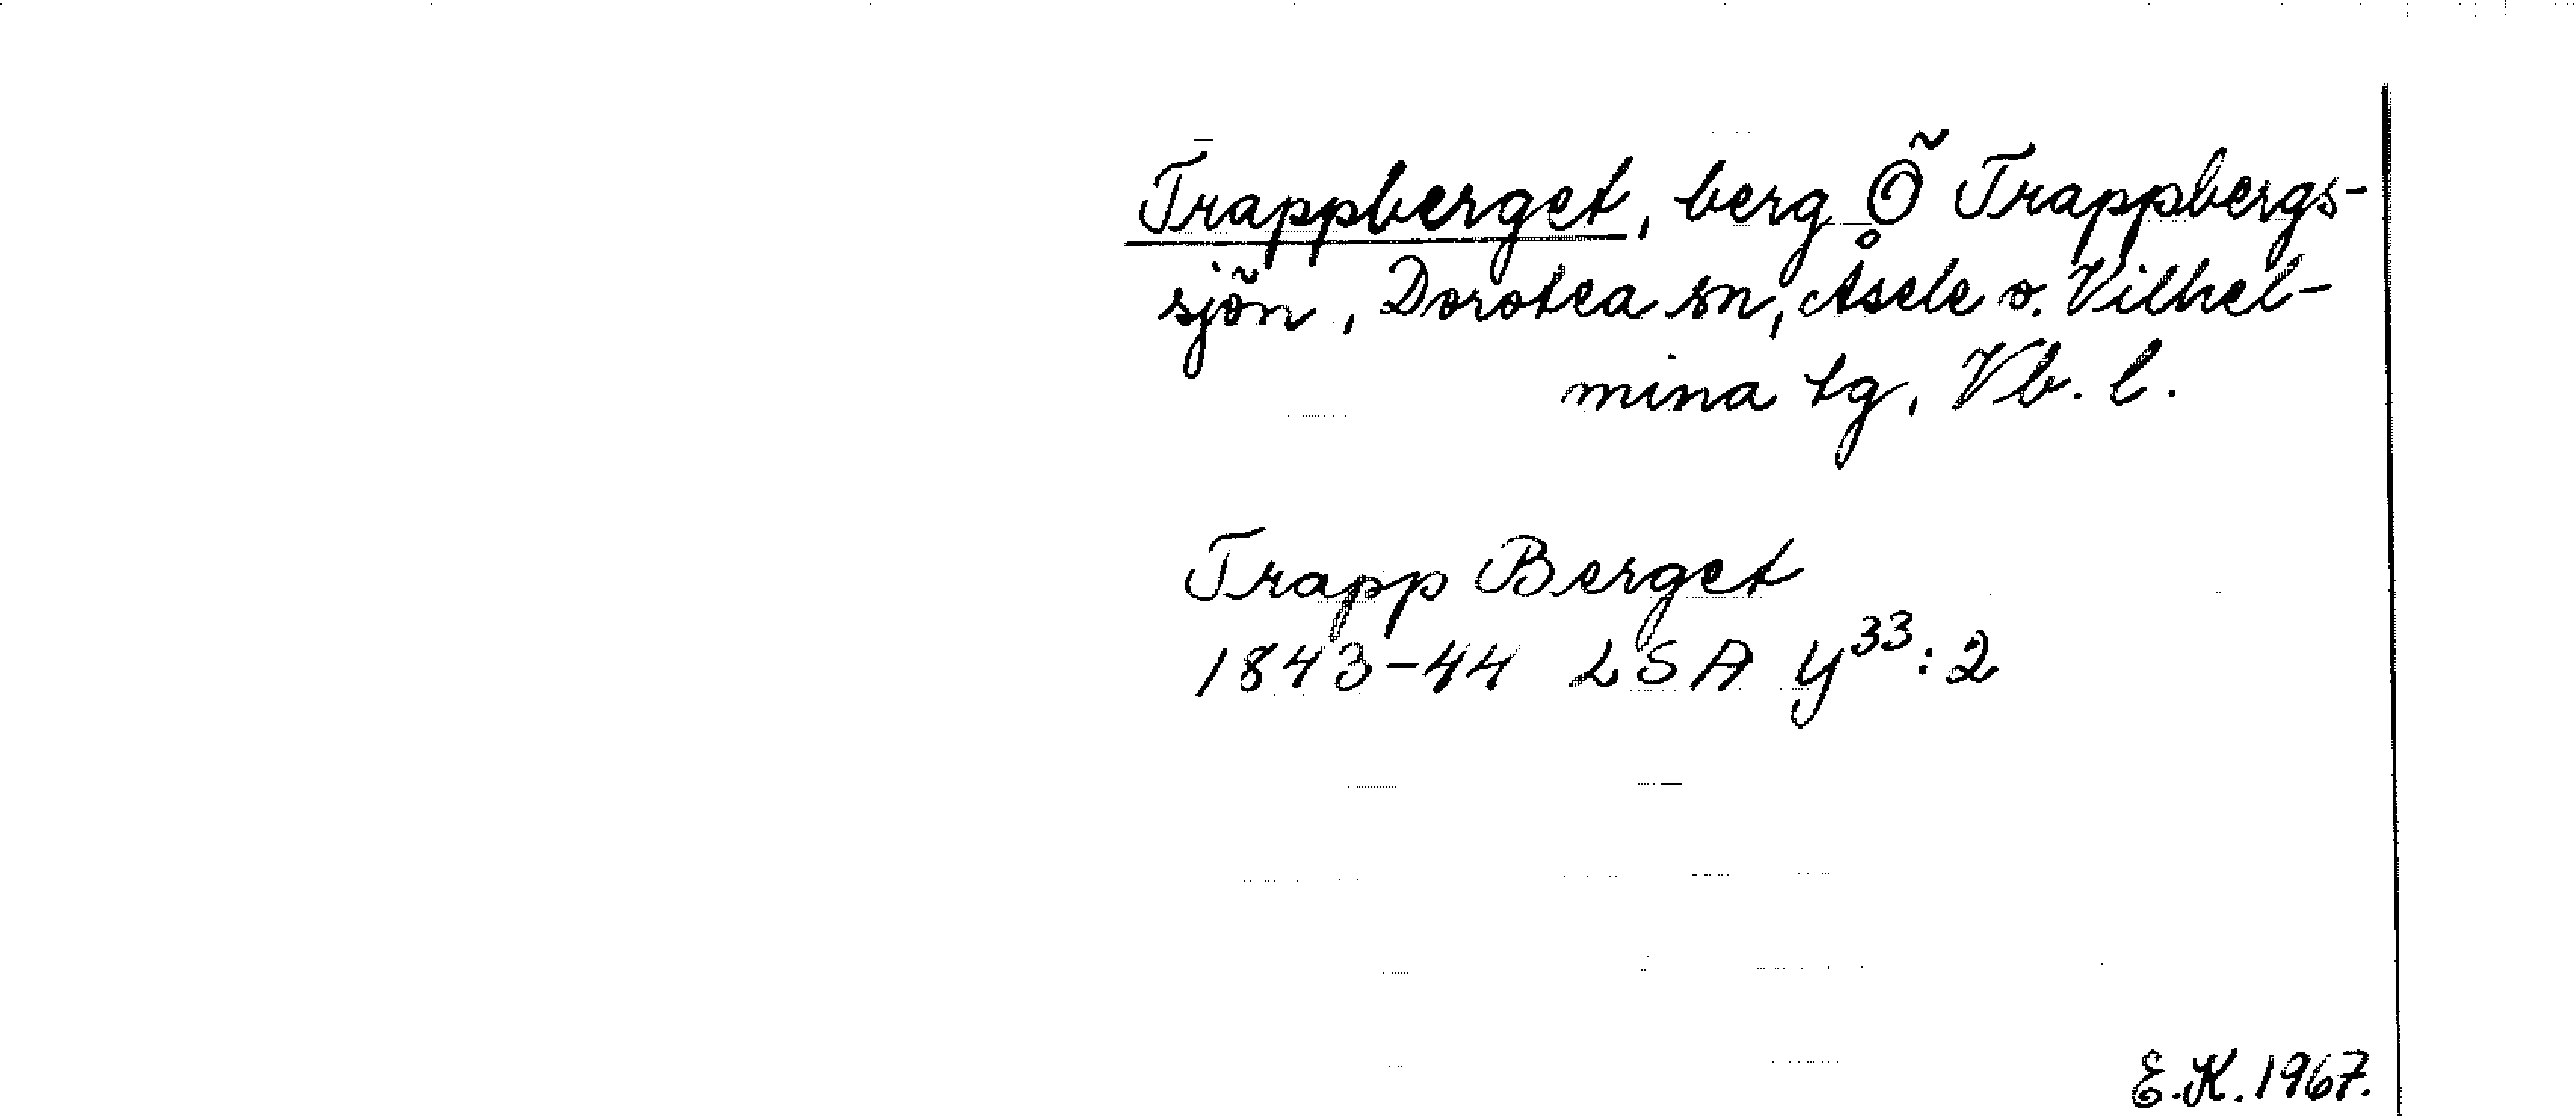 Trappberget, berg Ö Trappbergs-
sjön, Dorotea sn, Åsele o. Vilhel-
mina tg, Vb. l.
Trapp Berget
1843-44 LSA Y³³:2
E.K. 1967.